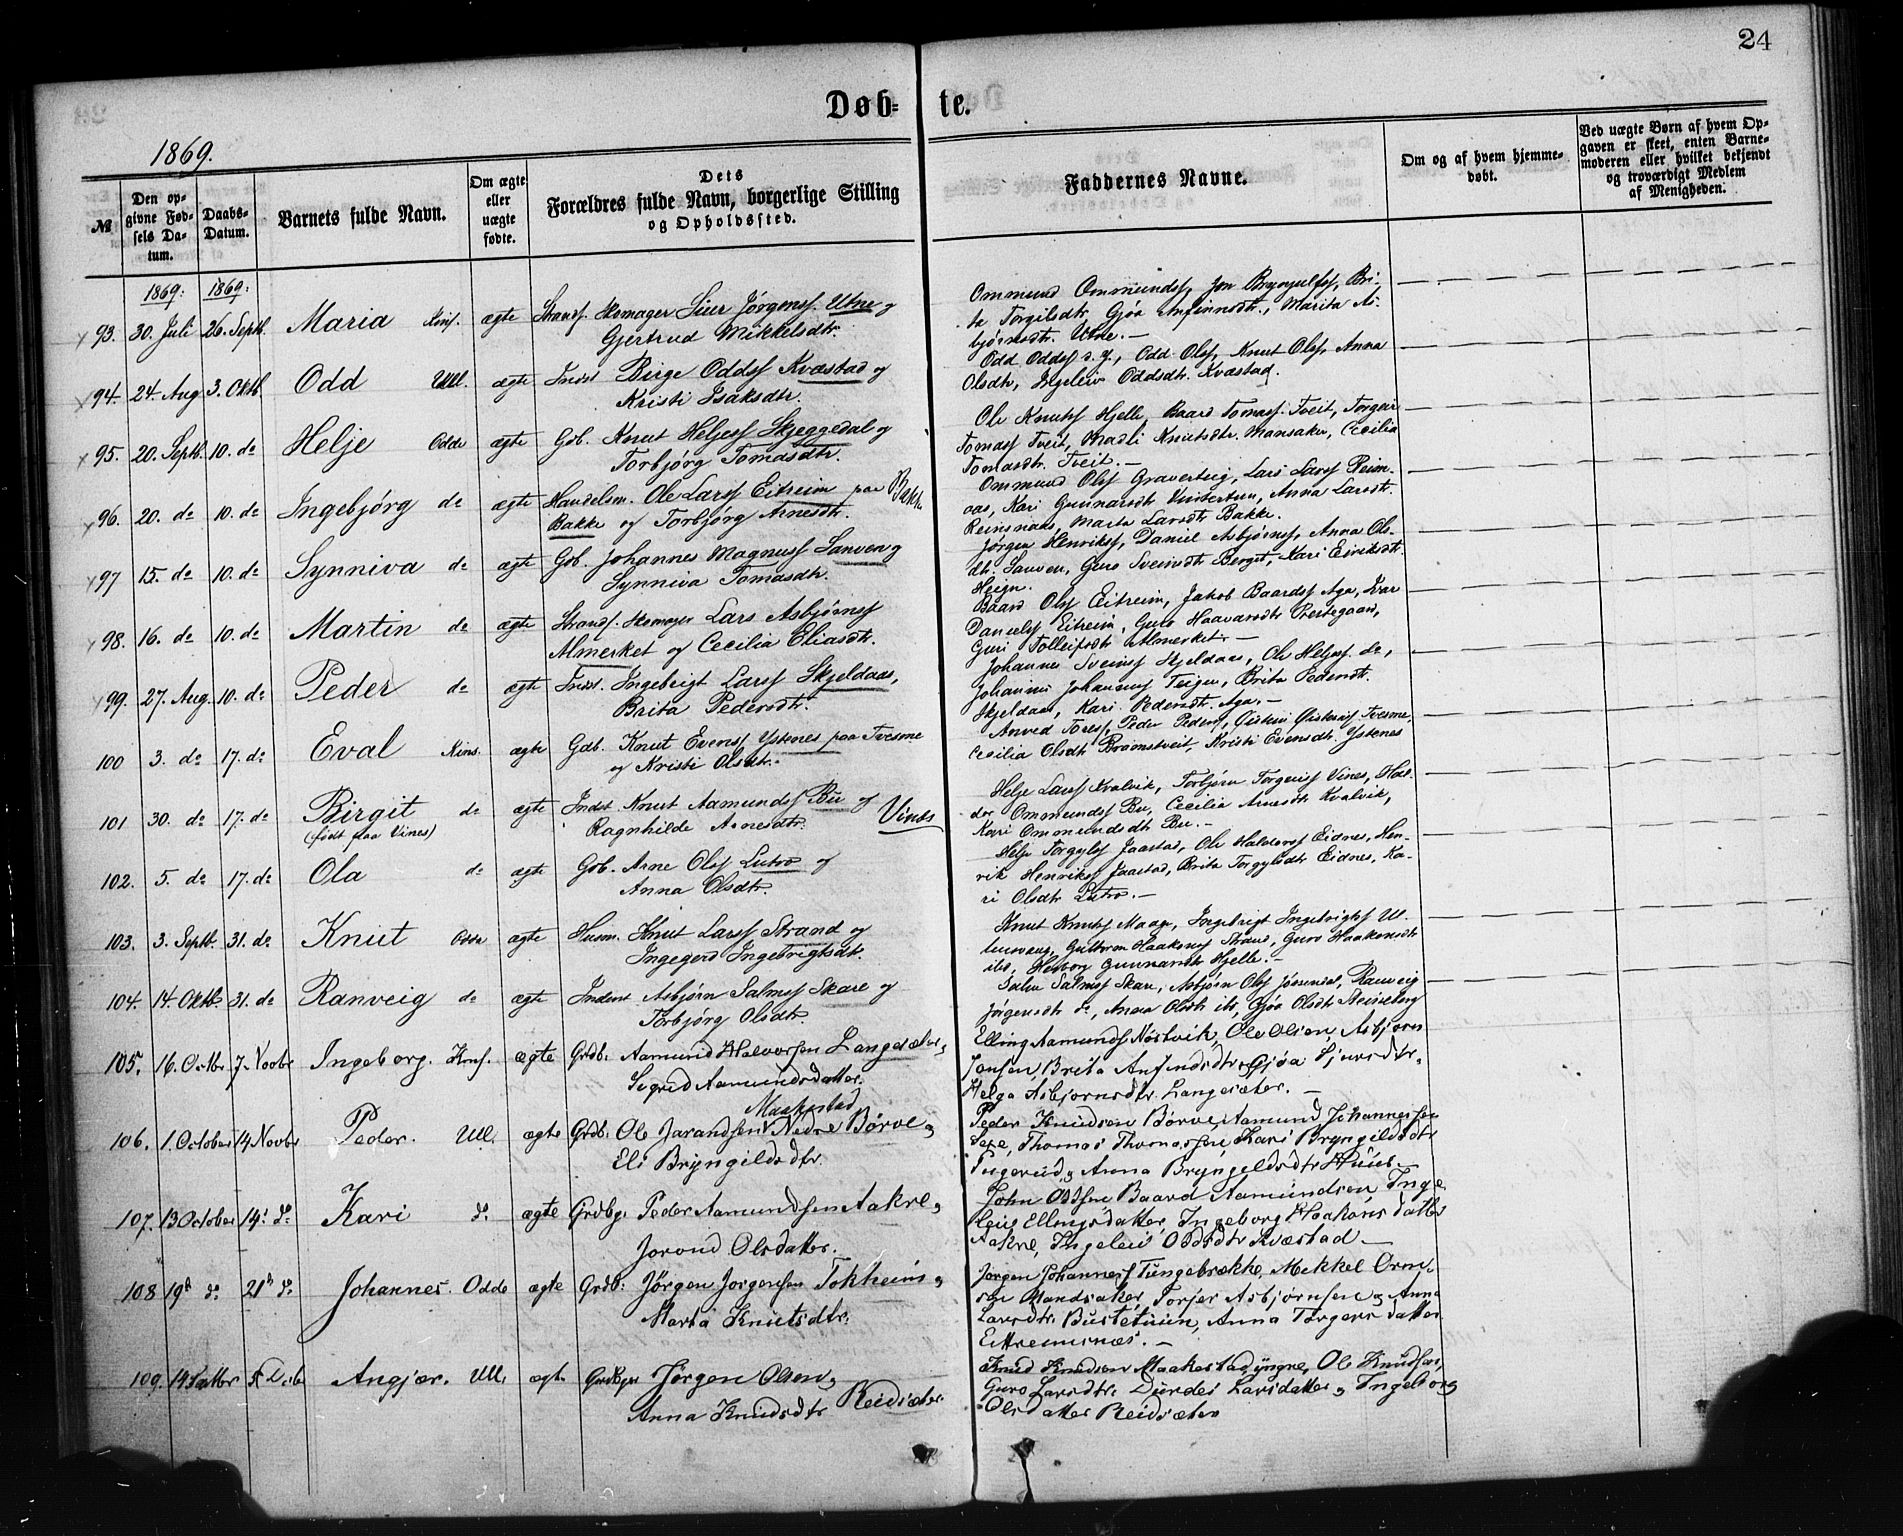 24
Døb-te.
1869.
№
Den op-
givne Fød-
sels Da-
tum.
Daabs-
Datum.
Barnets fulde Navn.
Om ægte
eller
uægte
fødte.
Dets
Forældres fulde Navn, borgerlige Stilling
og Opholdssted.
Faddernes Navne.
Om og af hvem hjemme-
døbt.
Ved uægte Børn af hvem Op-
gaven er skeet, enten Barne-
moderen eller hvilket bekjendt
og troværdigt Medlem
af Menigheden.
1869. 1869.
93. 30. Juli 26. Septb. Maria Kins. ægte Strands. Skomager Siur Jørgenss. Utne og
Gjertrud Mikkelsdtr.
Ommund Ommundss, Jon Brynjulfss, Bri-
ta Torgilsdtr Gjøa Anfinnsdt., Marita As-
bjørnsdt. Utne. -
94. 24. Aug 3. Oktb. Odd Ull. ægte Indst Birge Oddss Kvæstad og
Kristi Isaksdtr.
Odd Oddss d. y., Odd Olss, Knut Olss, Anna
Olsdtr, Ingeleiv Oddsdtr. Kvæstad.
95. 20. Septb. 10. do Helje Odde ægte Gdb. Knut Heljess Skjeggedal og
Torbjørg Tomasdtr.
Ole Knutss Hjelle, Baard Tomass. Tveit, Torgeir
Tomass Tveit, Madli Knutsdtr. Mansaker, Cecilia
Tomasdtr. Tveit -
96. 20. do 10. do Ingebjørg do ægte Handelsm. Ole Larss Eitreim paa Bakke
Bakke og Torbjørg Arnesdt.
Ommund Olss Graverteig, Lars Larss Reins-
aas, Kari Gunnarsdt Vintertun, Anna Larsdt.
Reinsnaas, Marta Larsdt Bakke.
97 15. do 10. do Synniva do ægte Gdb. Johannes Magnuss Sanven og
Synniva Tomasdtr.
Jørgen Henrikss, Daniel Asbjørnss, Anna Ols-
dt. Sanven, Guro Sveinsdt Berget, Kari Eiriksdt.
Heign.
98. 16. do 10. do Martin do ægte Strands. Skomager Lars Asbjørnss
Almerket og Cecilia Eliasdtr.
Baard Olss Eitreim, Jakob Baardss Aga, Ivar
Danielss Eitreim, Guro Haavarsdt Prestegaard,
Guri Tolleifsdt Almerket. -
99. 27. Aug. 10. do Peder do ægte Indst. Ingebrigt Larss Skjeldaas,
Brita Pedersdt.
Johannes Sveinss Skjeldaas, Ole Heljess do,
Johannes Johanness Teigen, Brita Pedersdt.
Skjeldaas, Kari Pedersdt. Aga. -
100 3. do 17. do Eval Kins. ægte Gdb. Knut Evenss Ystenes paa Tvesme
og Kristi Olsdt.
Anved Toress, Peder Pederss, Øistein Øisteinss Tvesme,
Cecilia Olsdt Bramstveit, Kristi Evensdt. Ystenes
101 30. do 17. do Birgit do ægte Indst. Knut Aamundss Bu og Vines
(født paa Vines) Ragnhilde Arnesdtr.
Helje Larss Kvalvik, Torbjørn Torgeirss Vines, Hal-
dor Ommundss Bu, Cecilia Arnesdt Kvalvik,
Kari Ommundsdt Bu. -
102. 5. do 17. do Ola do ægte Gdb. Arne Olss Lutro og
Anna Olsdtr.
Helje Torgylss Jaastad, Ole Haldorss Eidnes, Hen-
rik Henrikss Jaastad, Brita Torgylsdt Eidnes, Ka-
ri Olsdt Lutro. -
103. 3. Septb. 31. do Knut Odde ægte Husm. Knut Larss Strand og
Ingegerd Ingebrigtsdt.
Knut Knutss Maage, Ingebrigt Ingebrigtss Ul-
lensvang, Guttorm Haakonss Strand, Guro Haakonsdt
ibd, Herborg Gunnarsdt Hjelle. -
104. 14. Oktb. 31. do Ranveig do ægte Inderst Asbjørn Salmss Skare og
Torbjørg Olsdtr.
Salm Salmss Skare, Asbjørn Olss Jøsendal, Ranveig
Jørgensdt do, Anna Olsdt ibd, Gjøa Olsdt Steinsberg
105. 16. Octbr. 7. Novbr Ingeborg. Kins. ægte Grdb. Aamund Halvorsen Langesæter,
Sigrid Aamundsdatter.
Elling Aamundss Nøstvik, Ole Olsen, Asbjørn
Jonsen, Brita Anfindsdtr, Gjøa Sjursdtr,
Helga Asbjørnsdtr. Langesæter. -
106. 1. October 14 Novbr Peder. Ull. ægte Grdb. Ole Jarandsen Maakestad Nedre Børve,
Eli Bryngildsdtr.
Peder Knudsen Børve, Aamund Johannessen
Sexe, Thomas Thomassen, Kari Bryngildsdtr
og Anna Bryngeldsdtr Huus. -
107. 13 October 14. do Kari do. ægte Grdbgr Peder Aamundsen Aakre,
Jorond Olsdatter.
John Oddsen Baard Aamundsen Inge-
leiv Ellingsdatter, Ingeborg Haakonsdatter
Aakre, Ingeleiv Oddsdtr Kvæstad -
108 19de do. 21de do Johannes. Odde ægte Grdb. Jørgen Jørgensen Tokheim,
Marta Knutsdtr.
Jørgen Johanness Tungebrekke, Mekkel Orm-
sen Mandsaker, Torfer Asbjørnsen, Anna
Larsdtr. Bustetuun, Anna Torgersdatter
Eitremsnæs. -
109. 14 Octbr 5 Decb Angjær. Ull. ægte Grdbgr Jørgen Olsen,
Anna Knudsdtr Reidsæter
Knud Knudsen Maakestad yngre, Ole Knudsen,
Guro Larsdtr. Durdei Larsdatter, Ingeborg
Olsdatter Reidsæter